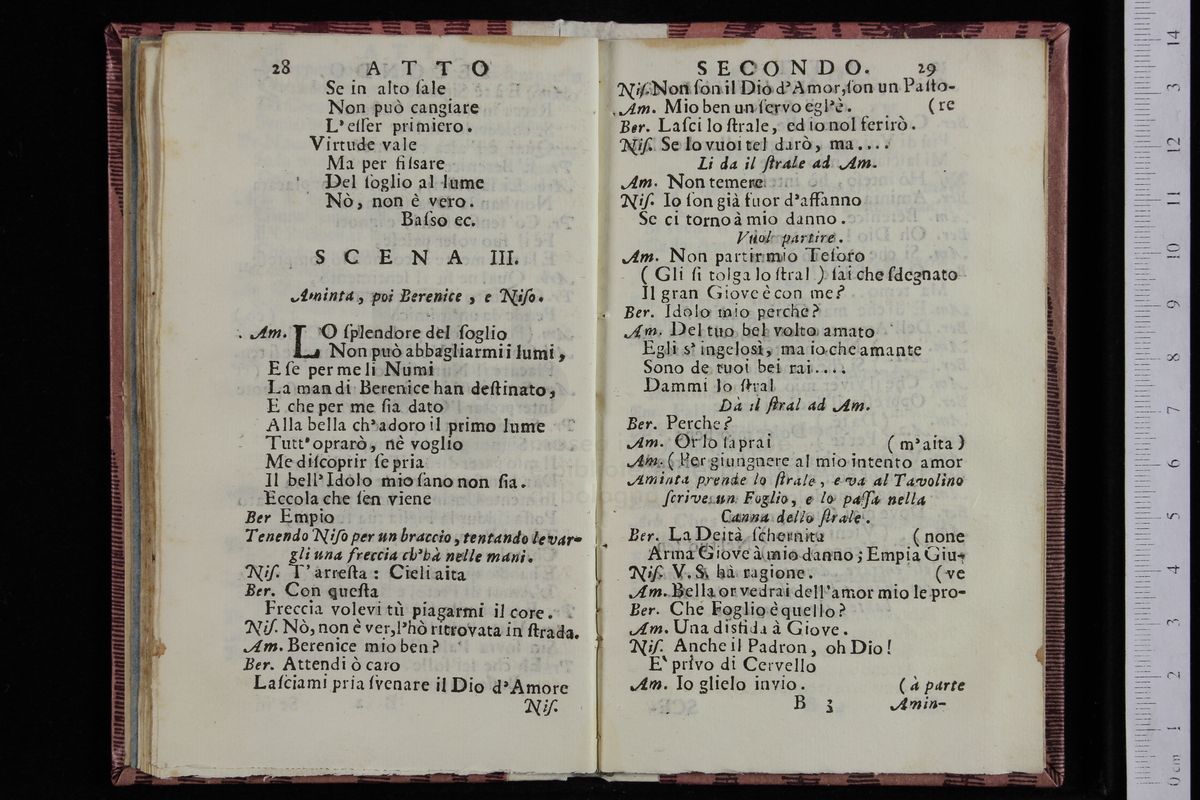 28 ATTO
Se in alto ſale
Non può cangiare
L'eſſer primiero.
Virtude vale
Ma per fiſsare
Del ſoglio al lume
Nò, non è vero.
Baſso ec.
SCENA III.
Aminta, poi Berenice, e Niſo.
Am. LO ſplendore del ſoglio
Non può abbagliarmi i lumi,
E ſe per me li Numi
La man di Berenice han deſtinato,
E che per me ſia dato
Alla bella ch'adoro il primo lume
Tutt'oprarò, nè voglio
Me diſcoprir ſe pria
Il bell'Idolo mio ſano non ſia.
Eccola che ſen viene
Ber Empio
Tenendo Niſo per un braccio, tentando levar-
gli una freccia ch'hà nelle mani.
Niſ. T'arreſta: Cieli aita
Ber. Con queſta
Freccia volevi tù piagarmi il core.
Niſ. Nò, non è ver, l'hò ritrovata in ſtrada.
Am. Berenice mio ben?
Ber. Attendi ò caro
Laſciami pria ſvenare il Dio d'Amore
Niſ.
SECONDO. 29
Niſ. Non ſon il Dio d'Amor, ſon un Paſto-
Am. Mio ben un ſervo egl'è. (re
Ber. Laſci lo ſtrale, ed io nol ferirò.
Niſ. Se lo vuoi tel darò, ma....
Li da il ſtrale ad Am.
Am. Non temere
Niſ. Io ſon già fuor d'affanno
Se ci torno à mio danno.
Vuol partire.
Am. Non partir mio Teſoro
(Gli ſi tolga lo ſtral) ſai che ſdegnato
Il gran Giove è con me?
Ber. Idolo mio perche?
Am. Del tuo bel volto amato
Egli s'ingelosì, ma io che amante
Sono de tuoi bei rai....
Dammi lo ſtral
Dà il ſtral ad Am.
Ber. Perche?
Am. Or lo ſaprai (m'aita)
Am. (Per giungnere al mio intento amor
Aminta prende lo ſtrale, e va al Tavolino
ſcrive un Foglio, e lo paſſa nella
Canna dello ſtrale.
Ber. La Deità ſchernita (none
Arma Giove à mio danno; Empia Giu-
Niſ. V.S. hà ragione. (ve
Am. Bella or vedrai dell'amor mio le pro-
Ber. Che Foglio è quello?
Am. Una disfida à Giove.
Niſ. Anche il Padron, oh Dio!
E' privo di Cervello
Am. Io glielo invio. (à parte
B 3 Amin-